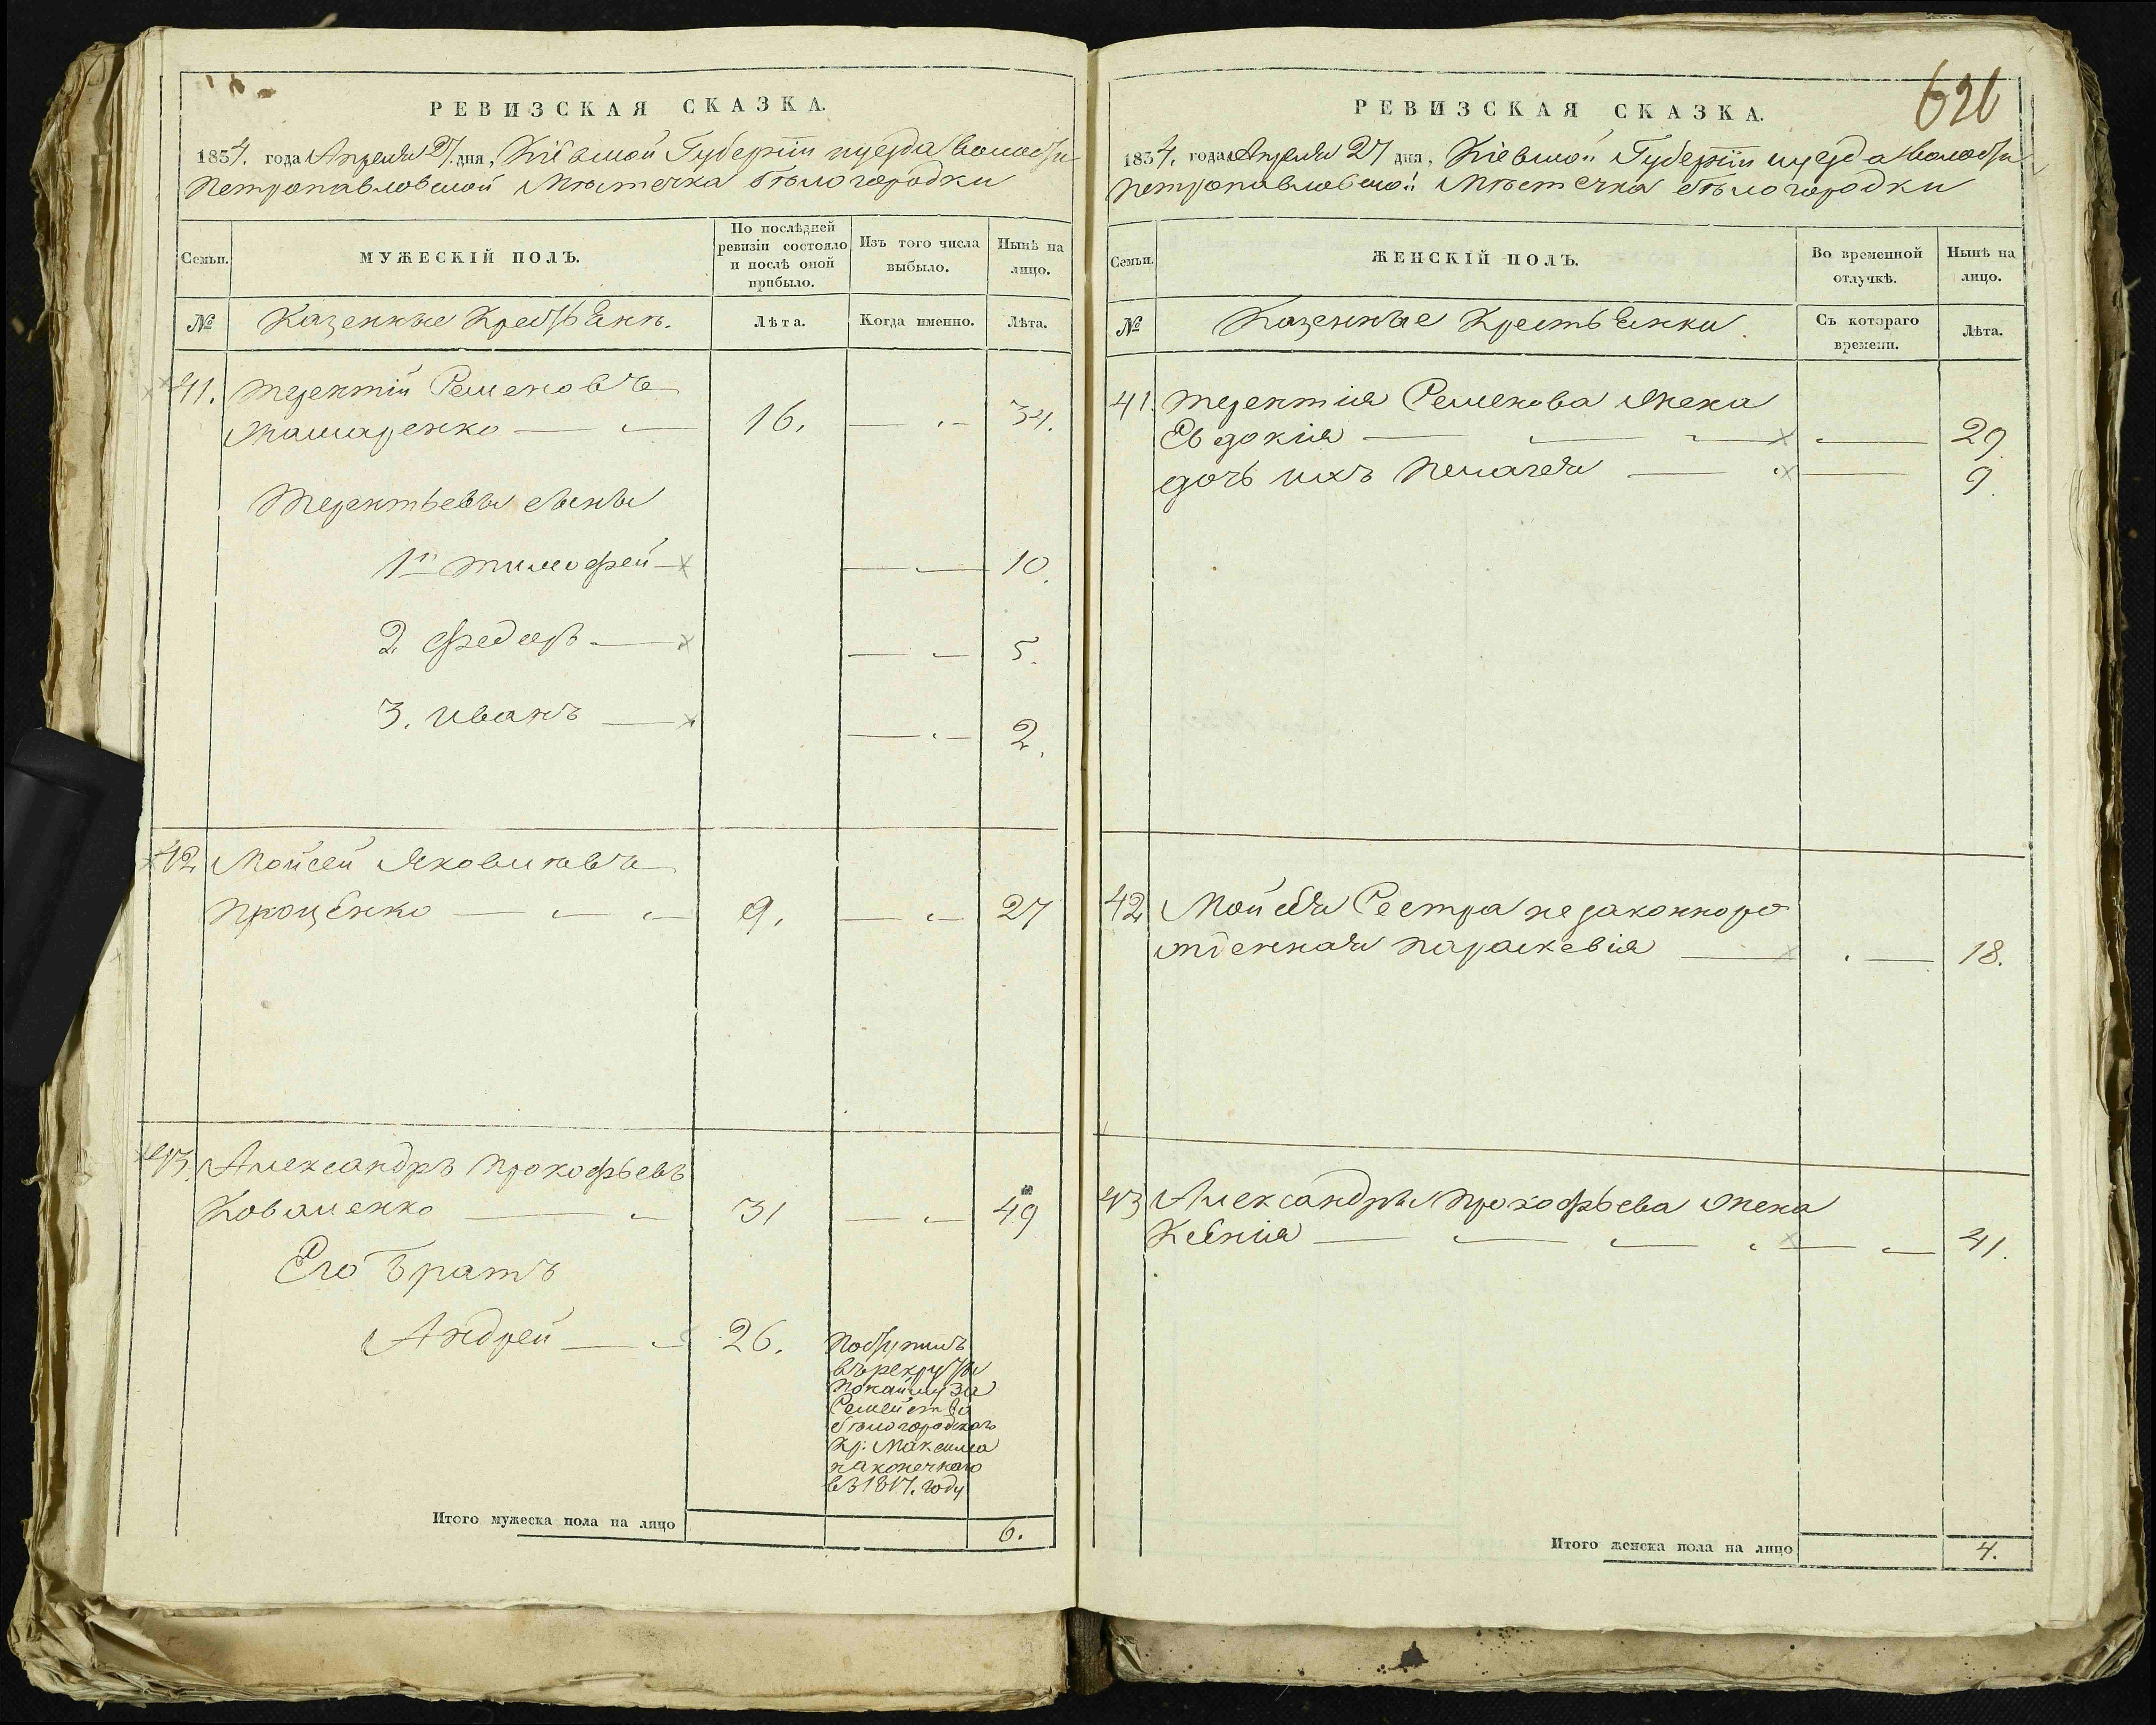 РЕВИЗСКАЯ СКАЗКА.
1834. года Апреля 27. дня, Кіевской Губерніи уезда волости
Петропавловской Мѣстечка Бѣлогородки
Семьи.
МУЖЕСКІЙ ПОЛЪ.
По послѣдней ревизіи состояло и послѣ оной прибыло.
Изъ того числа выбыло.
Нынѣ на лицо.
№
Казенные Крестьяне.
Лѣта.
Когда именно.
Лѣта.
41. Терентій Семеновъ
16. 34.
Терентьевы сыны
1й Тимофей 10.
2 Федоръ 5.
3. Иванъ 2.
42 Мойсей Яковлевъ
Проценко 9. 27
43. Александръ Прокофьевъ
Коваленко 31 49
Его братъ
Андрей 26. Поступилъ
въ рекруты
по найму за
Семейство
бѣлогородскаго
Кр: Максима
въ 1817. году
Итого мужеска пола на лицо 6.
626
РЕВИЗСКАЯ СКАЗКА.
1834. года Апреля 27 дня, Кіевской Губерніи уезда волости
Петропавловской Мѣстечка Бѣлогородки
Семьи.
ЖЕНСКІЙ ПОЛЪ.
Во временной отлучкѣ.
Нынѣ на лицо.
№
Казенные Крестьянки
Съ котораго времени.
Лѣта.
41. Терентия Семенова жена
Евдокия 29
дочь ихъ Пелагея 9.
42 Мойсея Сестра незаконноро
жденная Параскевія 18.
43 Александры Прокофьева жена
Ксенія 41.
Итого женска пола на лицо 4.